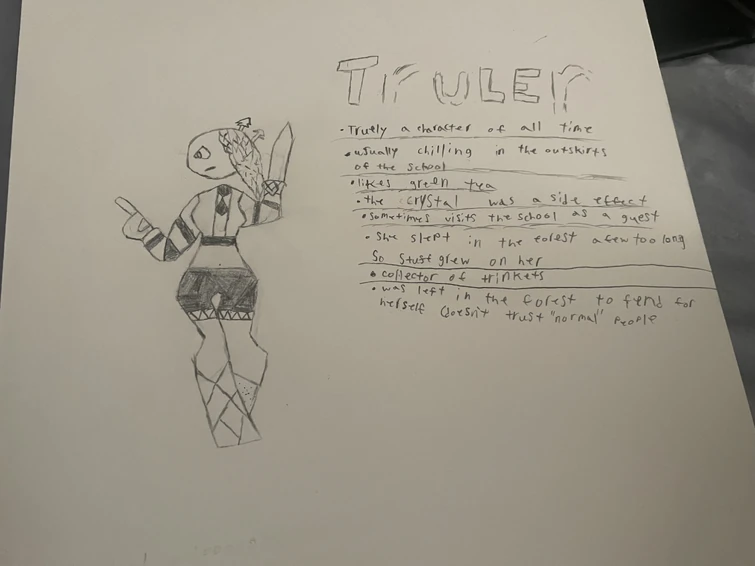 TruLEr
• Trully a character of all time
• usually chilling in the outskirts
of the school
• likes green tea
• the crystal was a side effect
• sometimes visits the school as a guest
• She slept in the forest a few too long
So stuff grew on her
• collector of trinkets
• was left in the forest to fend for
herself doesn't trust "normal" people